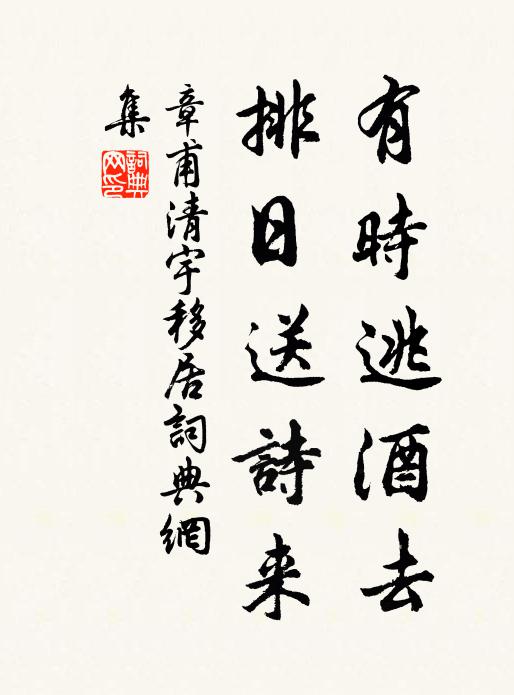 有時逃酒去
排日送詩来
章甫清宇移居詞典網
集
詞典網印